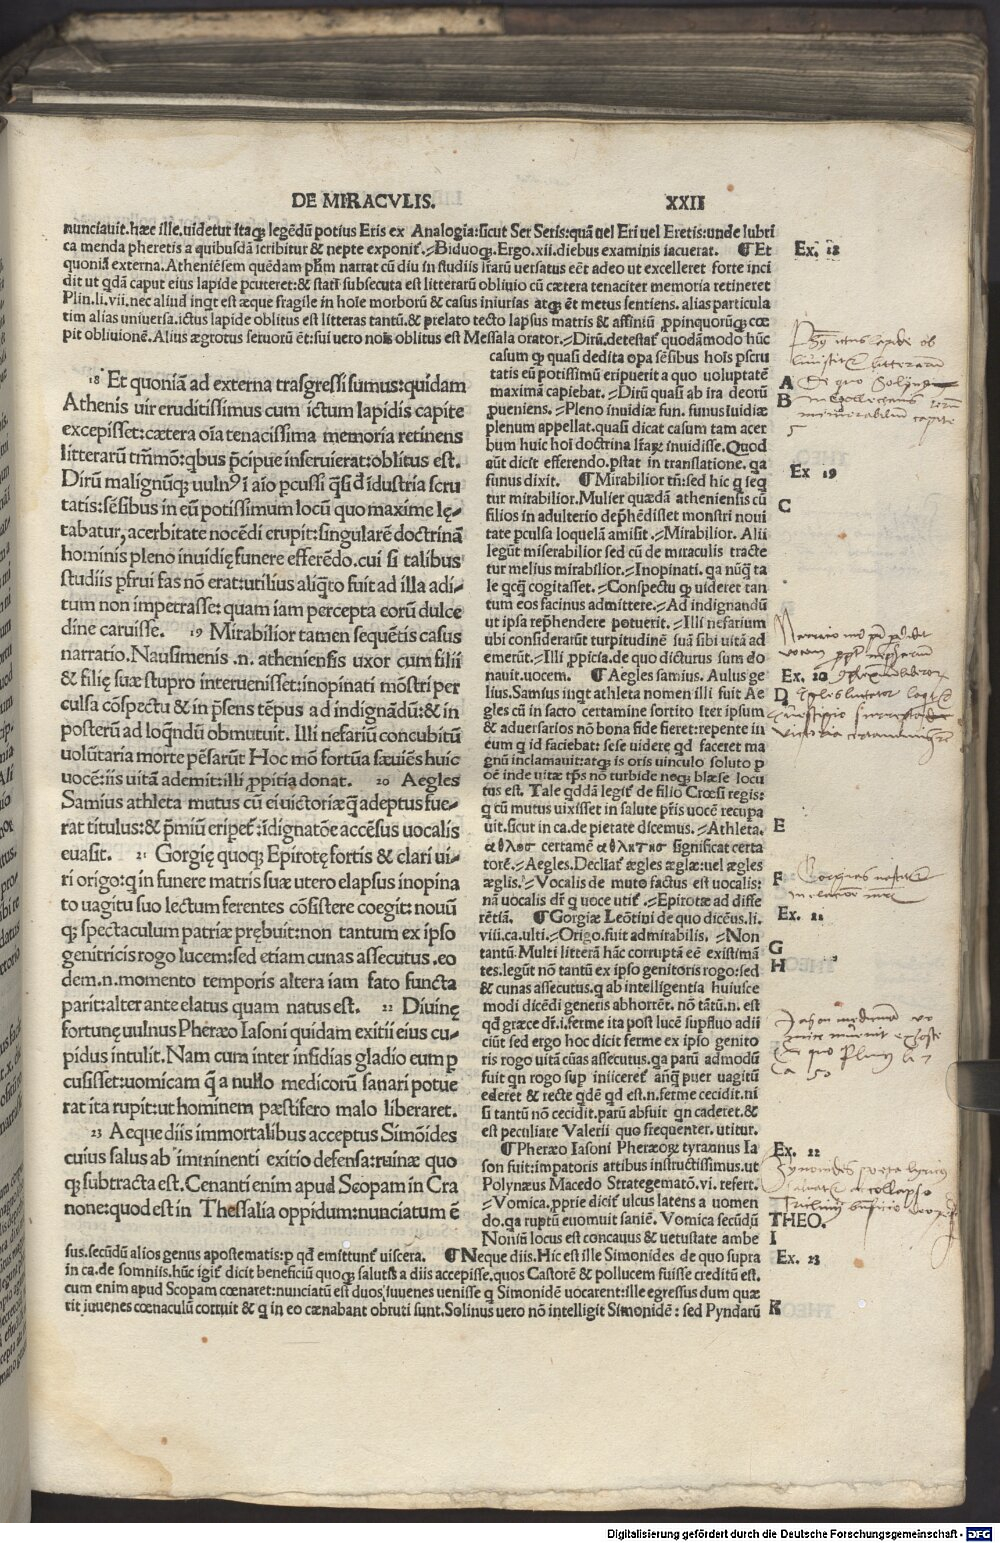 DE MIRACVLIS. XXII
nunciauit. hæc ille. uidetur itaqꝫ legēdū potius Eris ex Analogia: sicut Ser Seris: quā uel Eri uel Eretis: unde lubri
ca menda pheretis a quibusdā īcribitur & nepte exponit̄. Biduoqꝫ. Ergo .xii. diebus examinis iacuerat. ¶ Et
quoniā externa. Atheniēsem quēdam phm̄ narrat cū diu in studiis lr̄arū uersatus eēt adeo ut excelleret forte inci
dit ut qdā caput eius lapide pcuteret: & statī subsecuta est litterarū obliuio cū cætera tenaciter memoria retineret
Plin. li. vii. nec aliud inqt est æque fragile in hoīe morborū & casus iniurias atqꝫ ēt metus sentiens. alias particula
tim alias uniuersa. ictus lapide oblitus est litteras tantū. & prelato tecto lapsus matris & affiniū ppinquorūqꝫ cœ
pit obliuionē. Alius ægrotus seruorū ēt: sui uero nois oblitus est Messala orator. Dirū. detestat̄ quodāmodo hūc
18 Et quoniā ad externa trāsgressi sumus: quidam
Athenis uir eruditissimus cum ictum lapidis capite
excepisset: cætera oīa tenacissima memoria retinens
litterarū tm̄mō: qbus p̄cipue inseruierat: oblitus est.
Dirū malignūqꝫ uulnꝰ ī aīo pcussi q̄si d̄ īdustria scru
tatis: sēsibus in eū potissimum locū quo maxime lę
tabatur, acerbitate nocēdi erupit: singularē doctrinā
hominis pleno inuidię funere efferēdo. cui si talibus
studiis pfrui fas nō erat: utilius aliq̄to fuit ad illa adi
tum non impetrasse: quam iam percepta eorū dulce
dine caruisse. 19 Mirabilior tamen sequētis casus
narratio. Nausimenis .n. atheniensis uxor cum filii
& filię suæ stupro interuenisset: inopinati mōstri per
culsa cōspectu & in p̄sens tēpus ad indignādū: & in
posterū ad loqndū obmutuit. Illi nefariū concubitū
uolūtaria morte pēsarūt Hoc mō fortūa sæuiēs huic
uocē: iis uitā ademit: illi ppitia donat. 20 Aegles
Samius athleta mutus cū ei uictoriæ q̄ adeptus fue
rat titulus: & p̄miū eripet̄: īdignatōe accēsus uocalis
euasit. 21 Gorgię quoqꝫ Epirotę fortis & clari ui
ri origo: q in funere matris suæ utero elapsus inopina
to uagitu suo lectum ferentes cōsistere coegit: nouū
qꝫ spectaculum patriæ prębuit: non tantum ex ipso
genitricis rogo lucem: sed etiam cunas assecutus. eo
dem .n. momento temporis altera iam fato functa
parit: alter ante elatus quam natus est. 22 Diuinę
fortunę uulnus Pheræo Iasoni quidam exitii eius cu
pidus intulit. Nam cum inter insidias gladio eum p
cussisset: uomicam q̄ a nullo medicorū sanari potue
rat ita rupit: ut hominem pæstifero malo liberaret.
23 Aeque diis immortalibus acceptus Simōides
cuius salus ab imminenti exitio defensa: ruinæ quo
qꝫ subtracta est. Cenanti enim apud Scopam in Cra
none: quod est in Thessalia oppidum: nunciatum ē
casum qꝫ quasi dedita opa sēsibus hoīs pscru
tatis eū potissimū eripuerit a quo uoluptatē
maximā capiebat. Dirū quasi ab ira deorū
pueniens. Pleno inuidiæ fun. funus īuidiæ
plenum appellat. quasi dicat casum tam acer
bum huic hoī doctrina lr̄aꝝ inuidisse. Quod
aūt dicit efferendo. pstat in translatione. qa
funus dixit. ¶ Mirabilior tn̄: sed hic q seq
tur mirabilior. Mulier quædā atheniensis cū
filios in adulterio dep̄hēdisset monstri noui
tate pculsa loquelā amisit. Mirabilior. Alii
legūt miserabilior sed cū de miraculis tracte
tur melius mirabilior. Inopinati. qa nūq̄ ta
le qcq̄ cogitasset. Conspectu qꝫ uideret tan
tum eos facinus admittere. Ad indignandū
ut ipsa rep̄hendere potuerit. Illi nefarium
ubi considerarūt turpitudinē suā sibi uitā ad
emerūt. Illi ppicia. de quo dicturus sum do
nauit. uocem. ¶ Aegles samius. Aulus ge
lius. Samius inqt athleta nomen illi fuit Ae
gles cū in sacro certamine sortito iter ipsum
& aduersarios nō bona fide fieret: repente in
eum q id faciebat: sese uidere qd faceret ma
gnū inclamauit: atqꝫ is oris uinculo soluto p
oē inde uitæ tps nō turbide neqꝫ blæse locu
tus est. Tale qddā legit̄ de filio Crœsi regis:
q cū mutus uixisset in salute p̄ris uocē recupa
uit. sicut in ca. de pietate dicemus. Athleta.
αθλος certamē αθλητης significat certa
torē. Aegles. Declīat̄ ægles æglæ: uel ægles
æglis. Vocalis de muto factus est uocalis:
nā uocalis dr̄ q uoce utit̄. Epirotæ ad differe
rētiā. ¶ Gorgiæ Leōtini de quo dicēus. li.
viii. ca. ulti. Origo. fuit admirabilis. Non
tantū. Multi litterā hāc corruptā eē existimā
tes. legūt nō tantū ex ipso genitoris rogo: sed
& cunas assecutus. q ab intelligentia huiusce
modi dicēdi generis abhorrēt. nō tātū .n. est
qd græce dr̄. i. ferme ita post lucē supfluo adii
ciūt sed ergo hoc dicit ferme ex ipso genito
ris rogo uitā cūas assecutus. qa parū admodū
fuit qn rogo sup iniiceret̄ anq̄ puer uagitū
ederet & recte qdē qd est .n. ferme cecidit. ni
si tantū nō cecidit. parū absuit qn caderet. &
est peculiare Valerii quo frequenter. utitur.
¶ Pheræo Iasoni Pheræoꝝ tyrannus Ia
son fuit: impatoris artibus instructissimus. ut
Polynæus Macedo Strategematō. vi. refert.
Vomica. pprie dicit̄ ulcus latens a uomen
do. qa ruptū euomuit saniē. Vomica secūdū
Noniū locus est concauus & uetustate ambe
sus. secūdū alios genus apostematis: p qd emittunt̄ uiscera. ¶ Neque diis. Hic est ille Simonides de quo supra
in ca. de somniis. hūc igit̄ dicit beneficiū quoqꝫ salutis a diis accepisse. quos Castorē & pollucem fuisse creditū est.
cum enim apud Scopam cœnaret: nunciatū est duos iuuenes uenisse q Simonidē uocarent: ille egressus dum quæ
rit iuuenes cœnaculū corruit & q in eo cænabant obruti sunt. Solinus uero nō intelligit Simonidē: sed Pyndarū
Ex. 18
A
B
5
Ex 19
C
Ex. 20
D
E
F
Ex. 21
G
H
Ex. 22
THEO.
I
Ex. 23
K
Digitalisierung gefördert durch die Deutsche Forschungsgemeinschaft - DFG